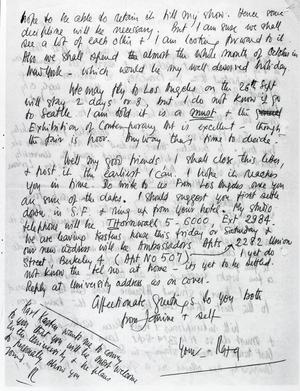 hope to be able to retain it till my show. Hence some
discipline will be necessary. But I am sure we shall
see a lot of each other + I am looking forward to it
Also we shall spend almost the whole month of October in
New York - which would be my well deserved holiday.
We may fly to Los Angeles on the 26th Sept
will stay 2 days or 3, but I do not know I go
to Seattle. I am told it is a must + the
Exhibition of Contemporary Art is excellent - though
the fair is poor. Anyway there is time to decide -
Well my good friends I shall close this letter,
+ post it the earliest I can. I hope it reaches
you in time. Do write to us from Los Angeles give you
an idea of the dates. I should suggest you first settle
down in S.F. + ring up from your hotel - My studio
telephone will be THornwall 5-6000 Ext 2984.
We are leaving Kashus home this Friday or Saturday +
our new address will be Ambassadors Apts 2282 Union
Street, Berkeley 4 (Apt No 507) I yet do
not know the tel no. at home - its yet to be settled.
Reply at University address as on cover.
Affectionate greetings to you both
from Janine + self
Yours - Raza
Karl Kasten wants me to convey
to you that you will be most welcome
by the University + he plans
to personally show you
round. R